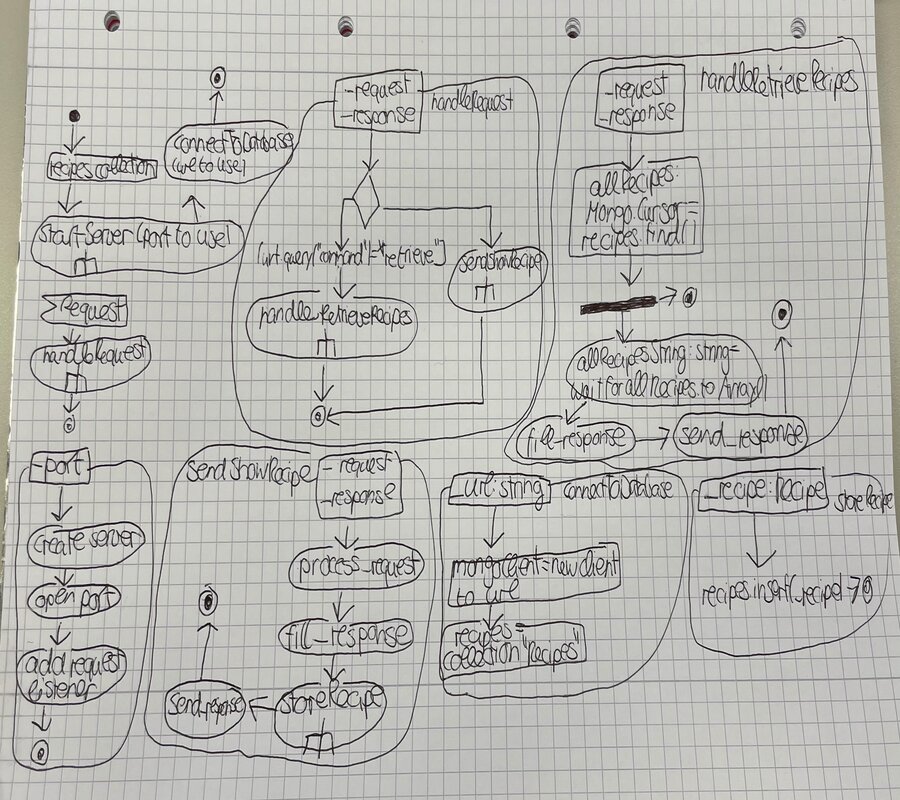 recipes.collection
startServer (port to use)
connectToDatabase
(url to use)
Request
handleRequest
_request
_response
handleRequest
[url.query["command"]="retrieve"]
sendShowRecipe
handleRetrieveRecipes
_request
_response
handleRetrieveRecipes
allRecipes:
Mongo.Cursor=
recipes.find()
allRecipesString: string=
wait for allRecipes.toArray()
fill_response
send_response
_port
create server
open port
add request
listener
sendShowRecipe
_request
_response
process_request
fill_response
storeRecipe
send_response
_url:string
connectToDatabase
mongoClient=new client
to url
recipes=
collection "Recipes"
_recipe:Recipe
storeRecipe
recipes.insert(_recipe)